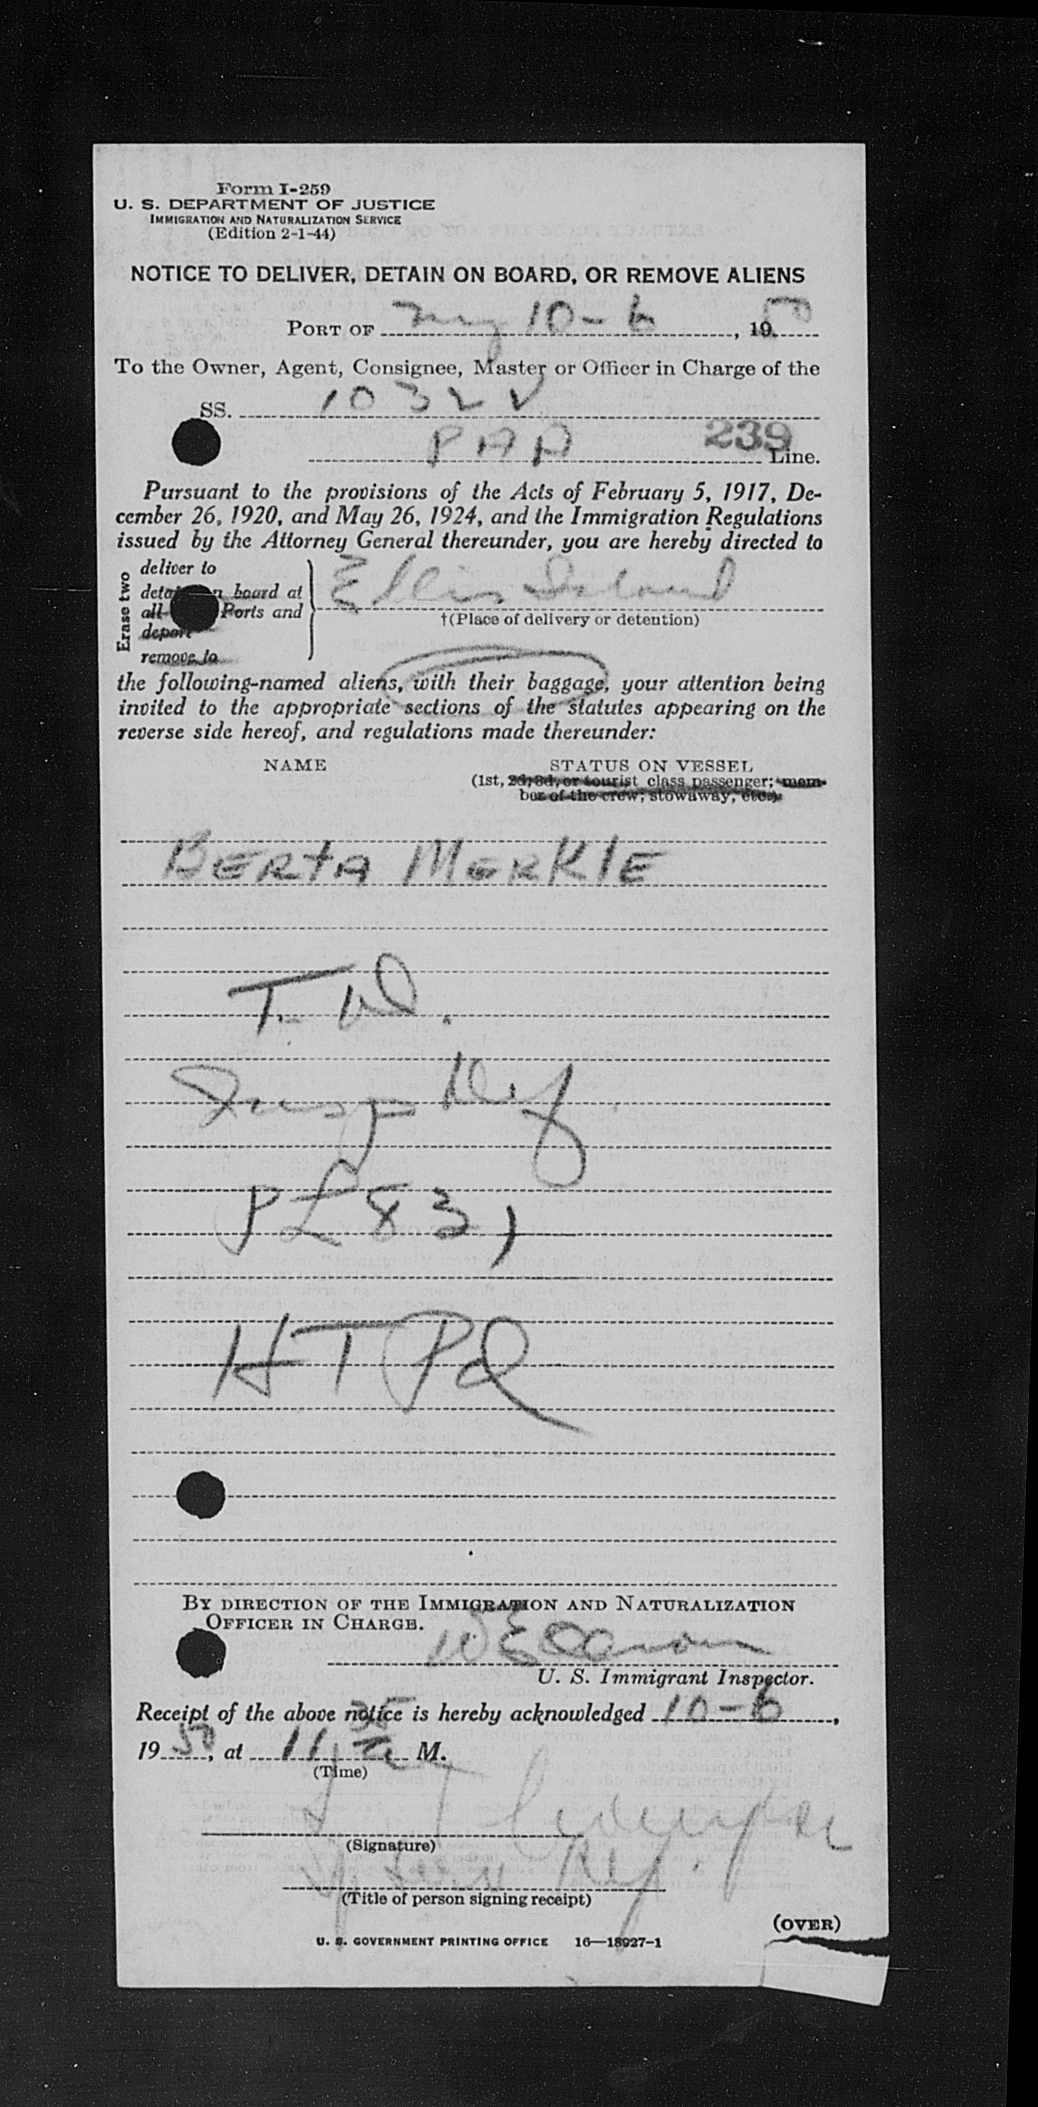 Form I-259
U. S. DEPARTMENT OF JUSTICE
IMMIGRATION AND NATURALIZATION SERVICE
(Edition 2-1-44)
NOTICE TO DELIVER, DETAIN ON BOARD, OR REMOVE ALIENS
PORT OF 10-6, 1950
To the Owner, Agent, Consignee, Master or Officer in Charge of the
SS. 1032 V
239
PAA Line.
Pursuant to the provisions of the Acts of February 5, 1917, De-
cember 26, 1920, and May 26, 1924, and the Immigration Regulations
issued by the Attorney General thereunder, you are hereby directed to
Erase two
deliver to
board at
all Ports and
deport
remove to
Ellis Island
†(Place of delivery or detention)
the following-named aliens, with their baggage, your attention being
invited to the appropriate sections of the statutes appearing on the
reverse side hereof, and regulations made thereunder:
NAME STATUS ON VESSEL
(1st, 2d, 3d, or tourist class passenger; mem-
ber of the crew; stowaway, etc.)
BERTA MERKLE
T.
PL 831
HT
BY DIRECTION OF THE IMMIGRATION AND NATURALIZATION
OFFICER IN CHARGE.
U. S. Immigrant Inspector.
Receipt of the above notice is hereby acknowledged 10-6,
1950, at 11 35 M.
(Time)
(Signature)
(Title of person signing receipt)
(OVER)
U. S. GOVERNMENT PRINTING OFFICE 16—18927-1